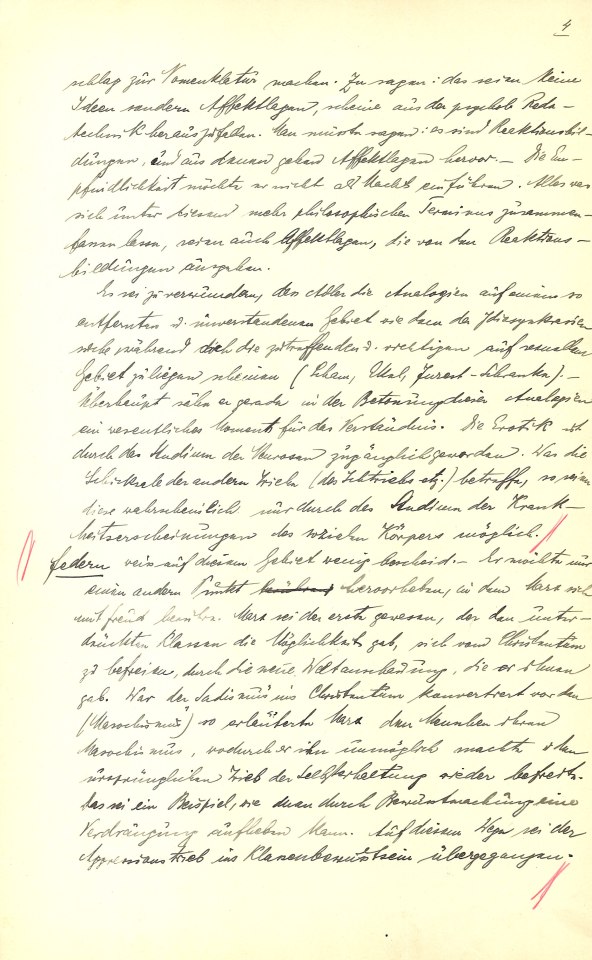 4
schlag zur Nomenklatur machen. Zu sagen: das seien keine
Ideen sondern Affektlagen, scheine aus der psycholo Rede-
technik herauszufallen. Man müsste sagen: es sind Reaktionsbil-
dungen, und aus denen gehen Affektlagen hervor. – Die Em-
pfindlichkeit möchte er nicht als Macht einführen. Alles was
sich unter diesem mehr philosophischen Terminus zusammen-
fassen lasse, seien auch Affektlagen, die von den Reaktions-
bildungen ausgehen.
Es sei zu verwundern, dass Adler die Analogien auf einem so
entfernten u. unverstandenen Gebiet wie dem der Idiosynkrasien
suche während doch die zutreffenden u. richtigen auf sexuellem
Gebiet zu liegen scheinen (Scham, Ekel, Inzest-Schranke). –
Überhaupt sähe er gerade in der Betonung dieser Analogien
ein wesentliches Moment für das Verständnis. Die Erotik ist
durch das Studium der Neurosen zugänglich geworden. Was die
Schicksale der andern Triebe (des Ichtriebs etz.) betreffe, so seien
diese wahrscheinlich nur durch das Studium der Krank-
heitserscheinungen des sozialen Körpers möglich.
federn weis auf diesem Gebiet wenig bescheid. – Er möchte nur
einen andern Punkt hervorheben, in dem Marx sich
mit Freud berühre. Marx sei der erste gewesen, der den unter-
drückten Klassen die Möglichkeit gab, sich vom Christentum
zu befreien, durch die neue Weltanschauung, die er ihnen
gab. War der Sadismus ins Christentum konvertiert worden
(Masochismus) so erläuterte Marx den Menschen ihren
Masochismus, wodurch er ihn unmöglich machte u. den
ursprünglichen Trieb der Selbsterhaltung wieder befreite.
Das sei ein Beispiel, wie man durch Bewustmachung eine
Verdrängung aufheben kann. Auf diesem Wege sei der
Aggressionstrieb ins Klassenbewustsein übergegangen.